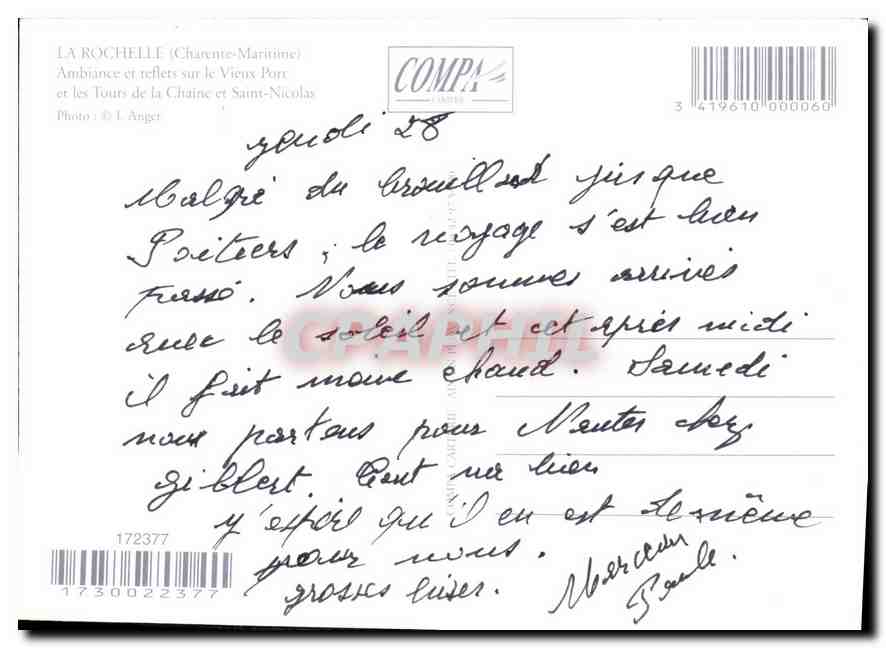 LA ROCHELLE (Charente-Maritime)
Ambiance et reflets sur le Vieux Port
et les Tours de la Chaîne et Saint-Nicolas
Photo : © J. Anger
COMPA
CARTERIE
3 419610 000060
jeudi 28
Malgré du brouillard jusque
Poitiers, le voyage s'est bien
passé. Nous sommes arrivés
avec le soleil et cet après midi
il fait même chaud. Samedi
nous partons pour Nantes chez
Gilbert. Tout va bien
j'espère qu'il en est de même
pour vous.
grosses bises.
Marceau
Paule.
CPAPHIL
172377
1730022377